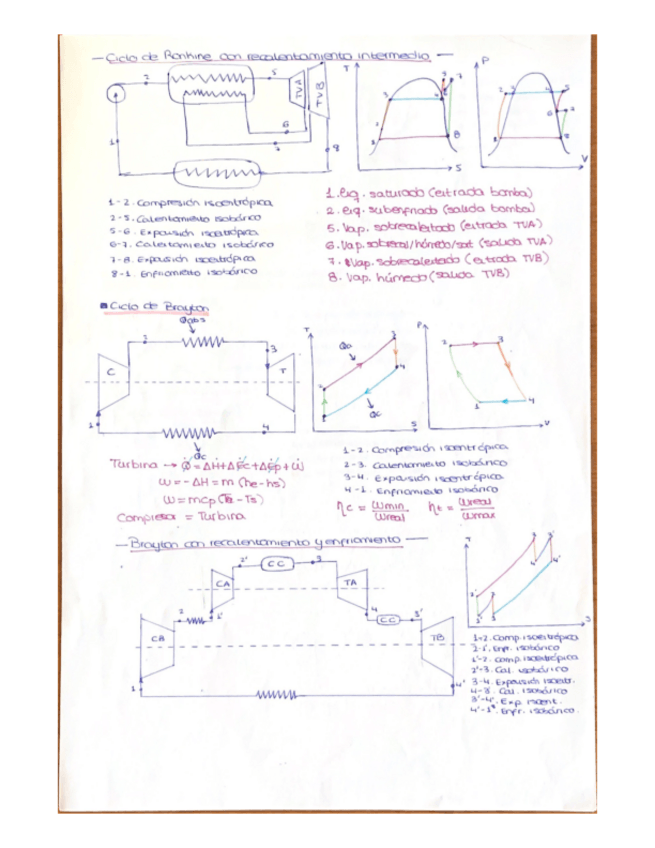 - Ciclo de Rankine con recalentamiento intermedio -
2
5
TVA
TVB
6
7
1
8
T
S
P
V
1-2. Compresión isoentrópica
2-5. Calentamiento isobárico
5-6. Expansión isoentrópica
6-7. Calentamiento isobárico
7-8. Expansión isoentrópica
8-1. Enfriamiento isobárico
1. Líq. saturado (entrada bomba)
2. Líq. subenfriado (salida bomba)
5. Vap. sobrecalentado (entrada TVA)
6. Vap. sobrecal/húmedo/sat (salida TVA)
7. Vap. sobrecalentado (entrada TVB)
8. Vap. húmedo (salida TVB)
Ciclo de Brayton
Qabs
2
3
C
T
1
4
Qc
T
Qa
Qc
S
P
V
Turbina → Q = ΔH+ΔEc+ΔEp+W
W = -ΔH = m (he-hs)
W = mcp (Te-Ts)
Compresor = Turbina
1-2. Compresión isoentrópica
2-3. Calentamiento isobárico
3-4. Expansión isoentrópica
4-1. Enfriamiento isobárico
ηc = Wmin/Wreal ηt = Wreal/Wmax
- Brayton con recalentamiento y enfriamiento -
2'
CC
3
CA
TA
2
1'
4
CC
3'
CB
TB
1
4'
T
S
1-2. Comp. isoentrópica
2-1'. Enfr. isobárico
1'-2'. Comp. isoentrópica
2'-3. Cal. isobárico
3-4. Expansión isoentr.
4-3'. Cal. isobárico
3'-4'. Exp. isoent.
4'-1. Enfr. isobárico.